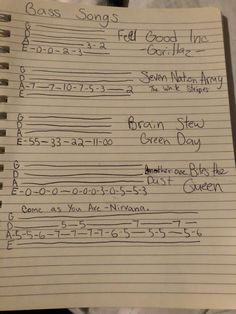 Bass Songs
G
D
A 3-2 Feel Good Inc
E-0-0-2-3 -Gorillaz-
G
D Seven Nation Army
A-7—7-10-7-5-3—2 The White Stripes
E
G
D Brain Stew
A Green Day
E-55-33-22-11-00
G
D Another one Bites the
A Dust Queen
E-0-0-0—0-0-0-3-0-5-5-3
Come as You Are -Nirvana.
G
D 5—5 7 7
A-5-5-6-7—7-7-7-6-5—5-5—5-6
E